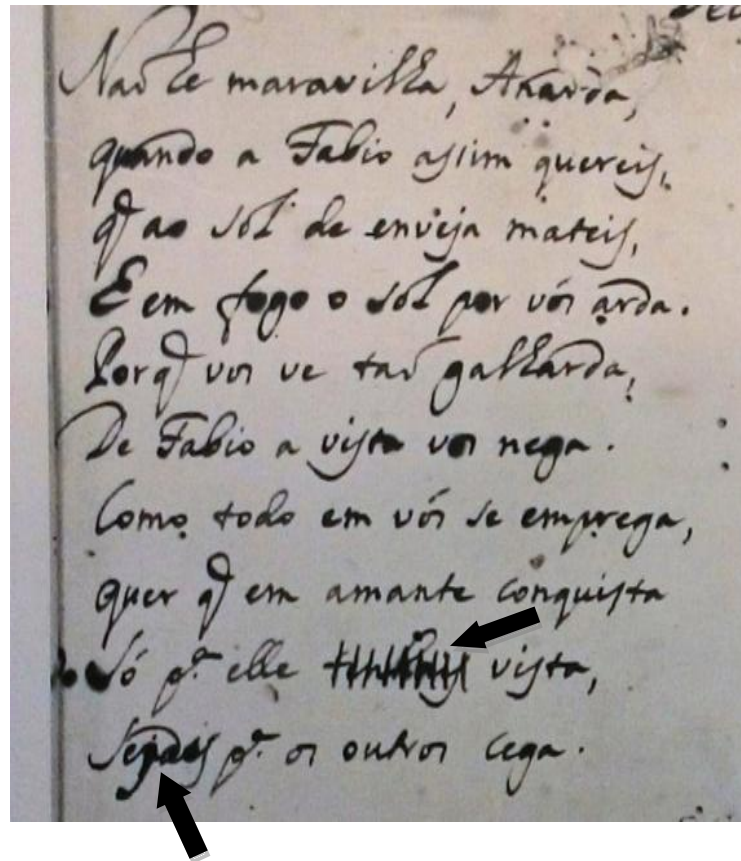 Naõ he maravilha, Anarda,
quando a Fabio assim quereis,
q̃ ao sol de enveja mateis,
E em fogo o sol por vós arda.
Porq̃ vos ve taõ galharda,
De Fabio a vista vos nega.
Como todo em vós se emprega,
quer q̃ em amante conquista
Só p.ª elle vista,
Sejais p.ª os outros cega.